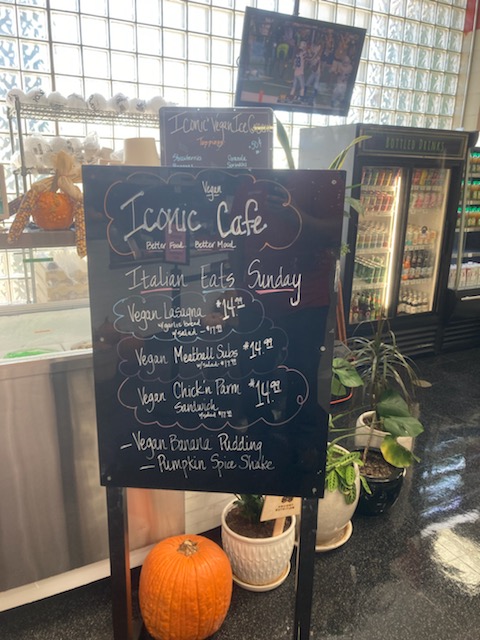 Iconic Vegan Ice
Toppings
Strawberries
BOTTLED DRINKS
Vegan
Iconic Cafe
Better Food Better Mood
Italian Eats Sunday
Vegan Lasagna $14.99
w/garlic bread
w/salad $17.99
Vegan Meatball Subs $14.99
w/salad $17.99
Vegan Chick'n Parm $14.99
Sandwich
w/salad $17.99
- Vegan Banana Pudding
- Pumpkin Spice Shake